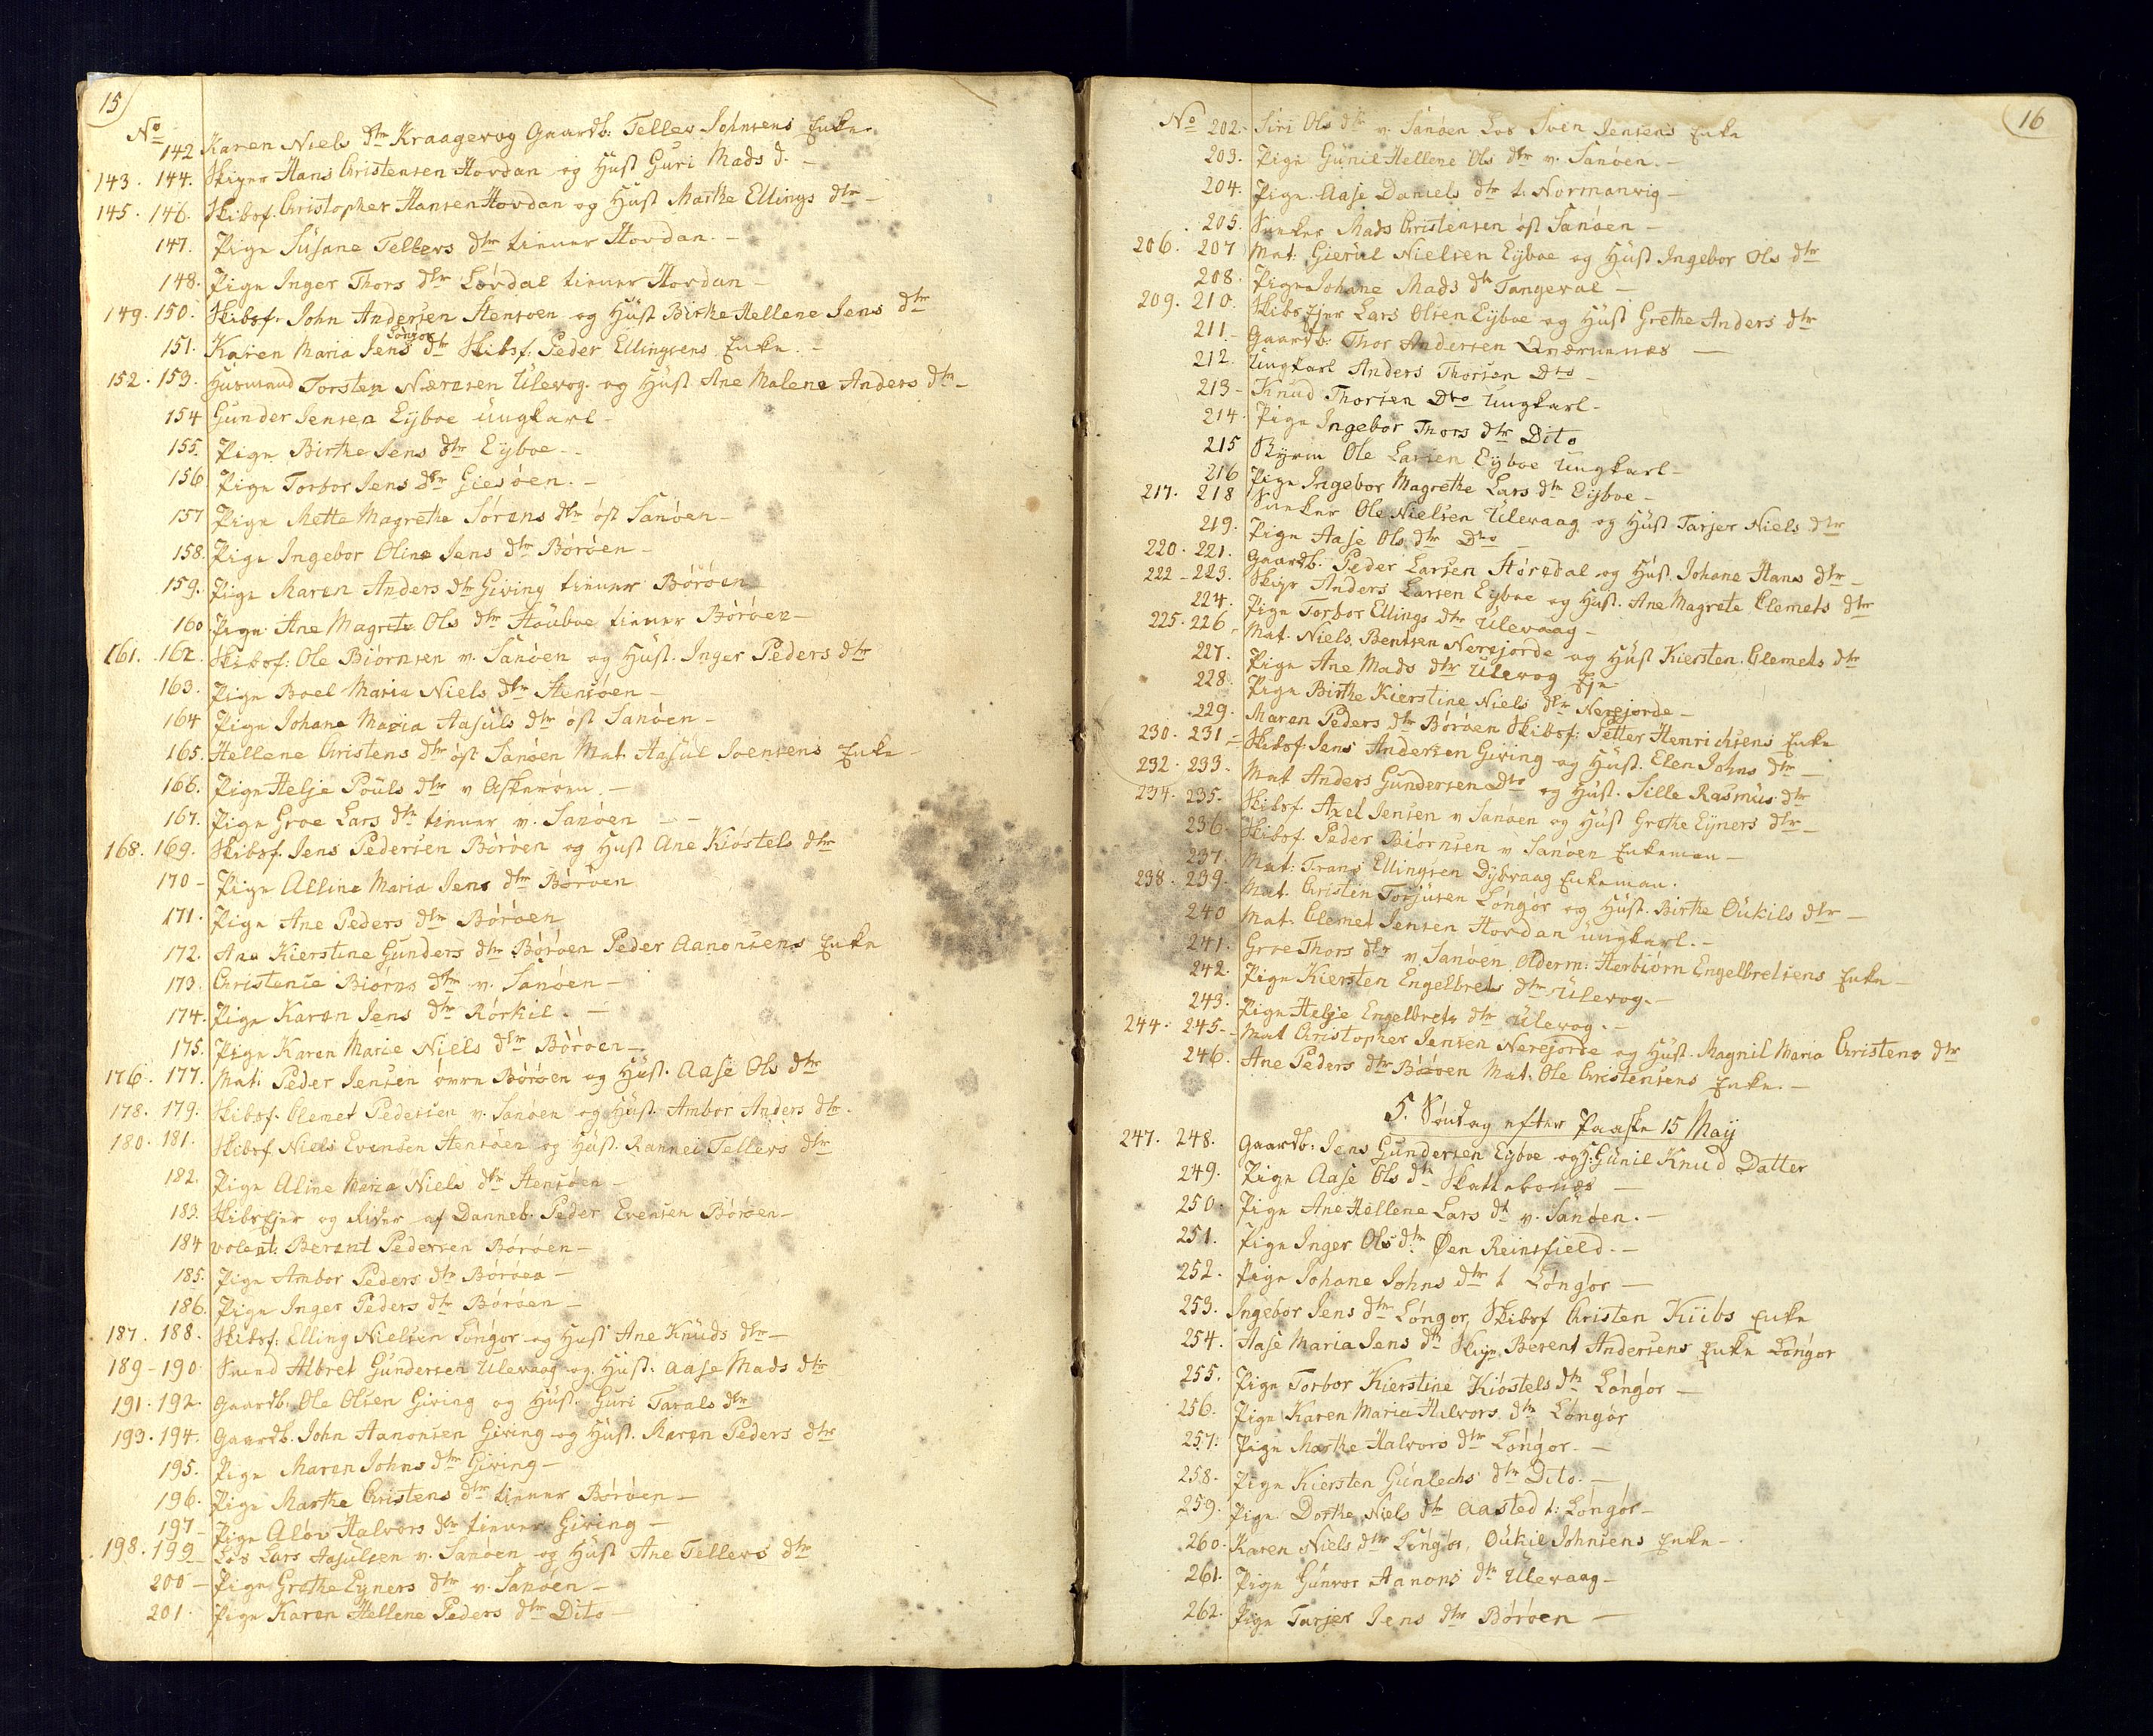 15
No
142 Karen Niels dtr Kraagevog Gaardb: Tellev Johnsens Enke
143. 144. Skiper Hans Christensen Hovdan og Hust Guri Mads d. -
145. 146. Skibsf. Christopher Hansen Hovdan og Hust Marthe Ellings dtr -
147. Pige Susane Tellevs dtr tiener Hovdan. -
148. Pige Inger Thors dtr Lövdal tiener Hovdan -
149. 150. Skibsf. John Andersen Stensöen og Hust Birthe Hellene Jens dtr
Löngör
151. Karen Maria Jens dtr Skibsf: Peder Ellingsens Enke. -
152. 153. Husmand Torsten Næresen Ulevog og Hust Ane Malene Anders dtr -
154 Gunder Jensen Eijboe ungkarl -
155. Pige Birthe Jens dtr Eijboe -
156 Pige Torbor Jens dtr Giesöen. -
157 Pige Mette Magrethe Sörens dtr öst Sanöen -
158. Pige Ingebor Oline Jens dtr Böröen -
159. Pige Maren Anders dtr Giving tiener Böröen
160 Pige Ane Magrete Ols dtr Houboe tiener Böröen -
161. 162. Skibsf: Ole Biörnsen v. Sanöen og Hust. Inger Peders dtr
163. Pige Boel Maria Niels dtr Stensöen -
164 Pige Johane Maria Aasuls dtr öst Sanöen -
165. Hellene Christens dtr öst Sanöen Mat. Aasul Svensens Enke -
166. Pige Helje Pouls dtr v Askeröen. -
167. Pige Groe Lars dtr tiener v. Sanöen -
168. 169. Skibsf. Jens Pedersen Böröen og Hust Ane Kiöstels dtr
170 - Pige Alline Maria Jens dtr Böröen
171. Pige Ane Peders dtr Böröen
172. Ane Kierstine Gunders dtr Böröen Peder Aanonsens Enke
173. Christense Biörns dtr v. Sanöen -
174. Pige Karen Jens dtr Rörkil. -
175. Pige Karen Marie Niels dtr Böröen -
176. 177. Mat: Peder Jensen övre Böröen og Hust. Aase Ols dtr
178. 179. Skibsf. Clemet Pedersen v. Sanöen og Hust. Ambor Anders dtr.
180. 181. Skibsf. Niels Evensen Stensöen og Hust. Rannei Tellevs dtr
182. Pige Aline Maria Niels dtr Stensöen -
183. Skibs Ejer og Rider af Danneb. Peder Evensen Böröen -
184 volent: Berent Pedersen Böröen -
185. Pige Ambor Peders dtr Böröen -
186. Pige Inger Peders dtr Böröen -
187. 188. Skibsf: Elling Nielsen Löngör og Hust Ane Knuds dtr -
189 - 190. Svend Albret Gundersen Ulevaag og Hust. Aase Mads dtr
191. 192. Gaardb: Ole Olsen Giving og Hust. Guri Tarals dtr
193. 194. Gaardb. John Aanonsen Giving og Hust. Maren Peders dtr
195. Pige Maren Johns dtr Giving -
196. Pige Marthe Christens dtr tiener Böröen -
197 - Pige Alöv Halvors dtr tiener Giving -
198. 199 Los Lars Aasulsen v. Sanöen og Hust Ane Tellevs dtr
200 - Pige Grethe Eyners dtr v. Sanöen -
201. Pige Karen Hellene Peders dtr Dito -
16
No
202. Siri Ols dtr v. Sanöen Los Sven Jensens Enke
203. Pige Gunil Hellene Ols dtr v. Sanöen. -
204. Pige Aase Daniels dtr t. Normanvig -
205. Mads Christensen öst Sanöen -
206. 207 Mat: Gierul Nielsen Eijboe og Hust Ingebor Ols dtr
208. Pige Johane Mads dtr Tangeval -
209. 210. Skibs Ejer Lars Olsen Eijboe og Hust Grethe Anders dtr
211 - Gaardb: Thor Andersen Qværnnæs -
212. Ungkarl Anders Thorsen Dto -
213 - Knud Thorsen Dto Ungkarl -
214. Pige Ingebor Thors dtr Dito
215 Ole Larsen Eijboe Ungkarl -
216 Pige Ingebor Magrethe Lars dtr Eijboe -
217. 218 Ole Nielsen Ulevaag og Hust Tarjer Niels dtr
219. Pige Aase Ols dtr Dto -
220. 221. Gaardb. Peder Larsen Höredal og Hust. Johane Hans dtr -
222 - 223. Skipr Anders Larsen Eijboe og Hust. Ane Magrete Clemets dtr
224. Pige Torbor Ellings dtr Ulevaag -
225. 226. Mat. Niels Bentsen Nerejorde og Hust Kiersten Clemets dtr
227. Pige Ane Mads dtr Ulevog Eje
228. Pige Birthe Kierstine Niels dtr Nerejorde -
229. Maren Peders dtr Böröen Skibsf: Petter Henrichsens Enke
230. 231 - Skibsf: Jens Andersen Giving og Hust. Elen Johns dtr -
232. 233. Mat Anders Gundersen Dto og Hust. Sille Rasmus dtr
234. 235. Skibsf. Axel Jensen v Sanöen og Hust Grethe Eyners dtr -
236. Skibsf. Peder Biörnsen v Sanöen Enkeman -
237. Mat: Frans Ellingsen Dybvaag Enkeman.
238. 239. Mat. Christen Torjusen Löngör og Hust. Birthe Oukils dtr -
240 Mat. Clemet Jensen Hovdan ungkarl. -
241. Groe Thors dtr v. Sanöen Olderm: Herbiörn Engelbretsens Enke -
242. Pige Kiersten Engelbrets dtr Ulevog. -
243. Pige Helje Engelbrets dtr Ulevog. -
244. 245. - Mat Christopher Jensen Nerejorde og Hust. Magnil Maria Christens dtr
246. Ane Peders dtr Böröen Mat. Ole Christensens Enke. -
5. Söndag efter Paaske 15 Maij
247. 248. Gaardb: Jens Gundersen Eijboe og H: Gunil Knud Datter
249. Pige Aase Ols dtr Skattebonæs -
250. Pige Ane Hellene Lars dtr v. Sanöen. -
251. Pige Inger Ols dtr Øen Reinsfield. -
252. Pige Johane Johns dtr t Löngör -
253. Ingebor Jens dtr Löngör, Skibsf Christen Kiibs Enke
254. Aase Maria Jens dtr Skipr Berent Andersens Enke Löngör
255. Pige Torbor Kierstine Kiöstels dtr Löngör -
256. Pige Karen Maria Halvors dtr Löngör
257: Pige Marthe Halvors dtr Löngör. -
258. Pige Kiersten Gunlechs dtr Dito. -
259. Pige Dorthe Niels dtr Aasted t: Löngör -
260. Karen Niels dtr Löngör, Oukil Johnsens Enke -
261. Pige Gunvor Aanons dtr Ulevaag -
262. Pige Tarjer Jens dtr Böröen -